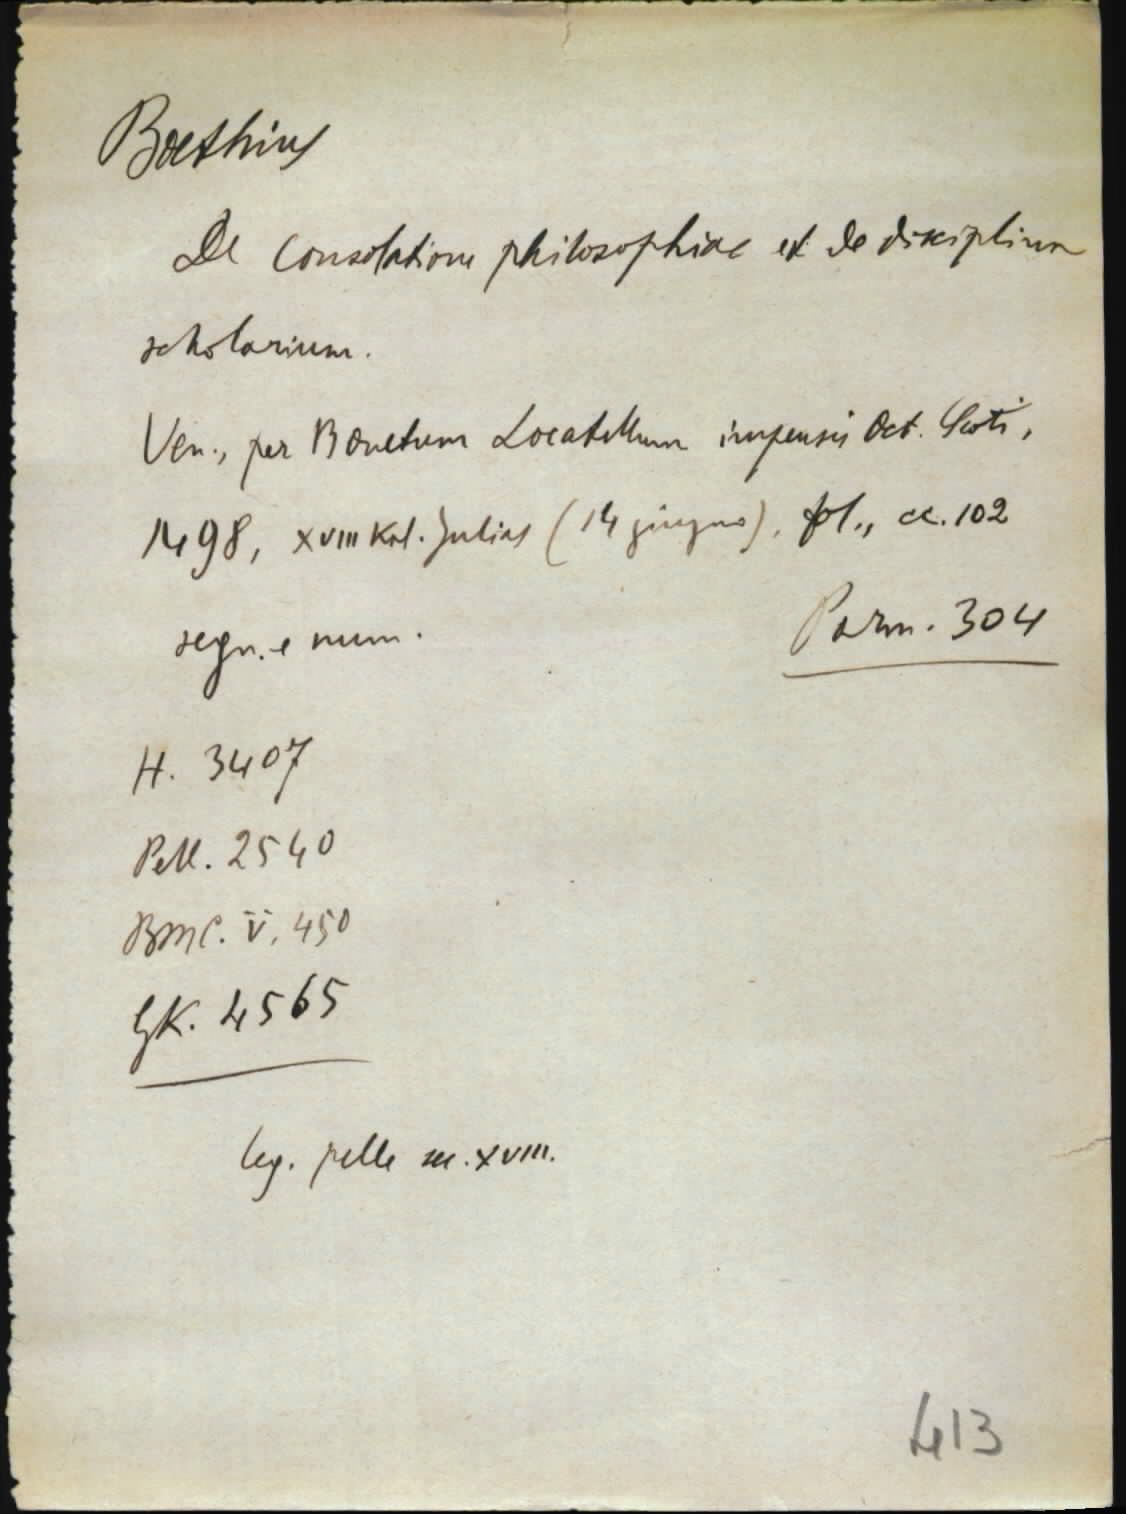 Boethius
De consolatione philosophiae et de disciplina
scholarium.
Ven., per Bonetum Locatellum impensis Oct. Scoti,
1498, XVIII Kal. Julias (14 giugno), fol., cc. 102
segn. e num.
Parm. 304
H. 3407
Pell. 2540
BMC. V, 450
GK. 4565
leg. pelle sec. XVIII.
413